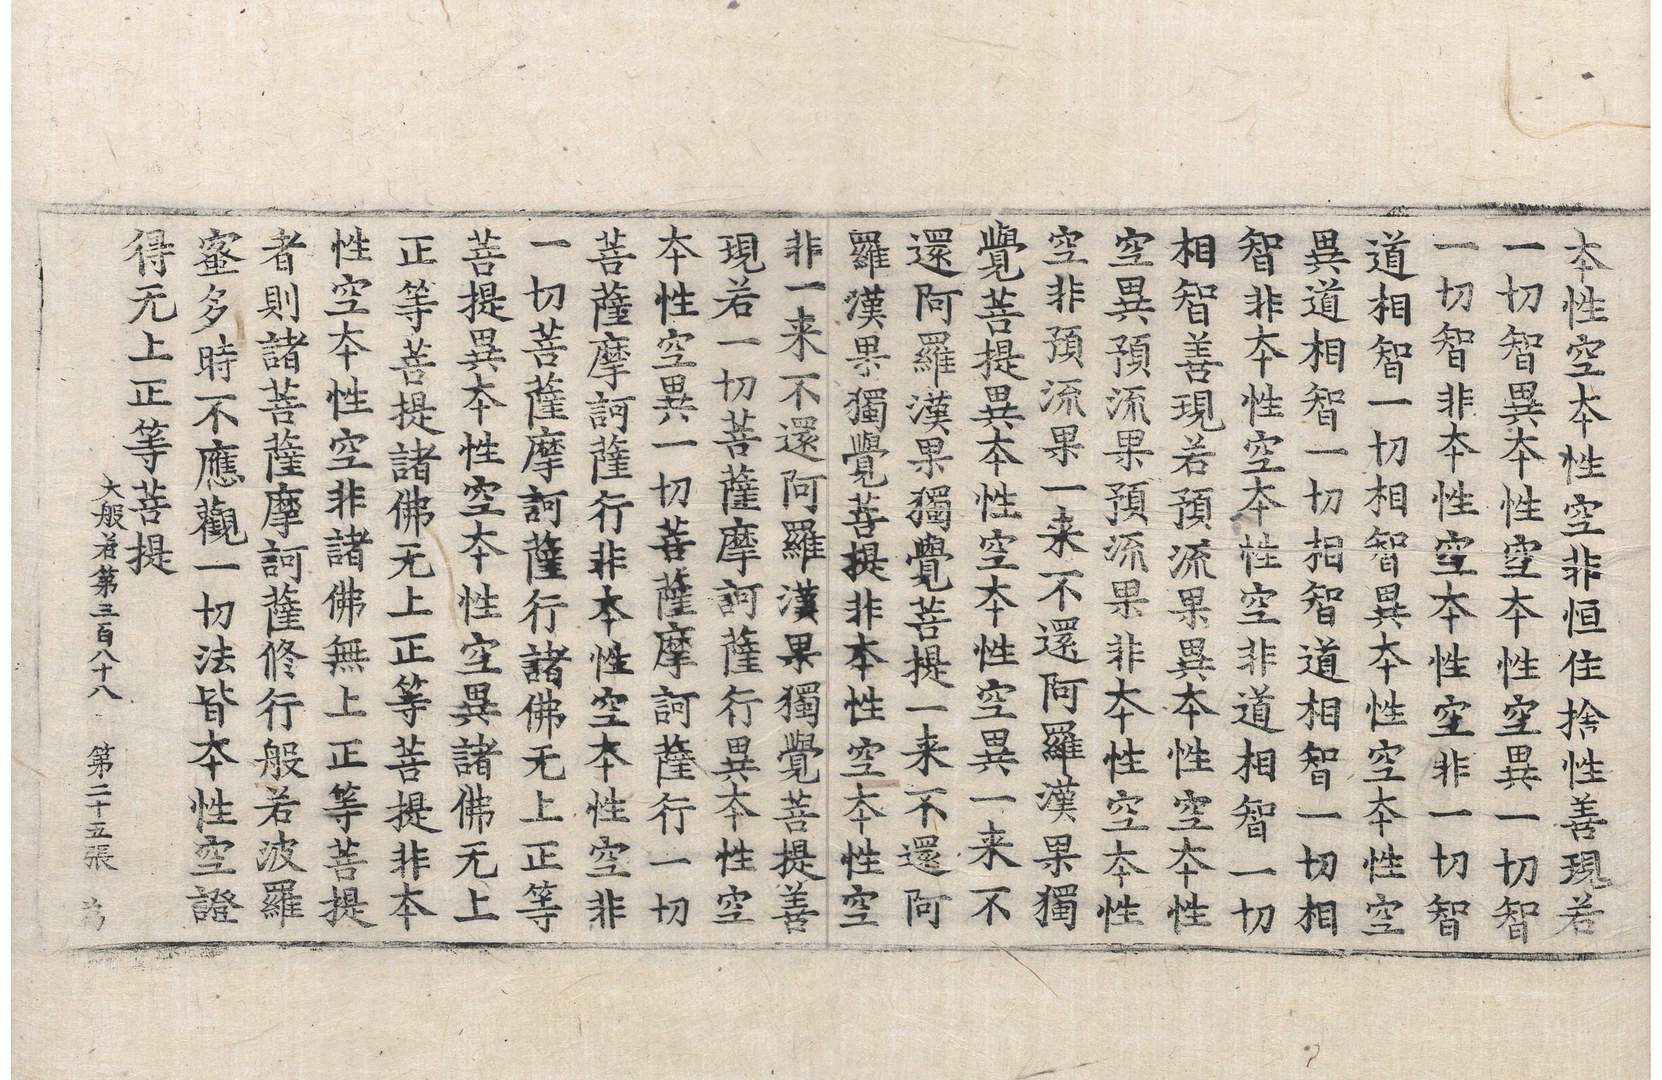 本性空本性空非恒住捨性善現若
一切智異本性空本性空異一切智
一切智非本性空本性空非一切智
道相智一切相智異本性空本性空
異道相智一切相智道相智一切相
智非本性空本性空非道相智一切
相智善現若預流果異本性空本性
空異預流果預流果非本性空本性
空非預流果一来不還阿羅漢果獨
覺菩提異本性空本性空異一来不
還阿羅漢果獨覺菩提一来不還阿
羅漢果獨覺菩提非本性空本性空
非一来不還阿羅漢果獨覺菩提善
現若一切菩薩摩訶薩行異本性空
本性空異一切菩薩摩訶薩行一切
菩薩摩訶薩行非本性空本性空非
一切菩薩摩訶薩行諸佛无上正等
菩提異本性空本性空異諸佛无上
正等菩提諸佛无上正等菩提非本
性空本性空非諸佛無上正等菩提
者則諸菩薩摩訶薩修行般若波羅
蜜多時不應觀一切法皆本性空證
得无上正等菩提
大般若第三百八十八 第二十五張